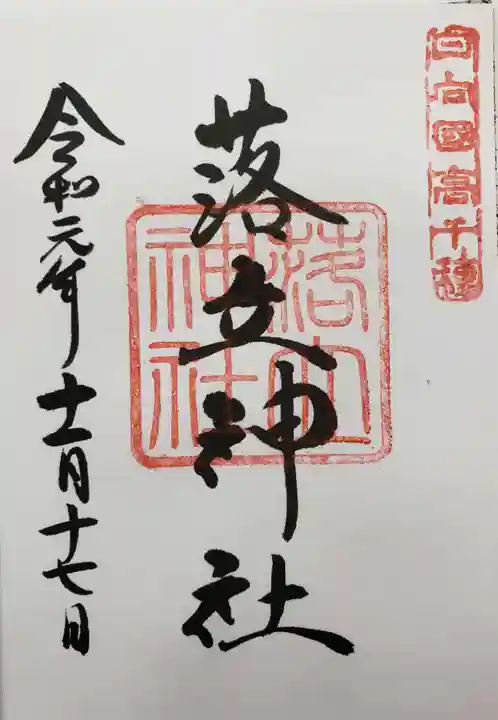 日向国高千穂
落立神社
落立神社
令和元年十一月十七日